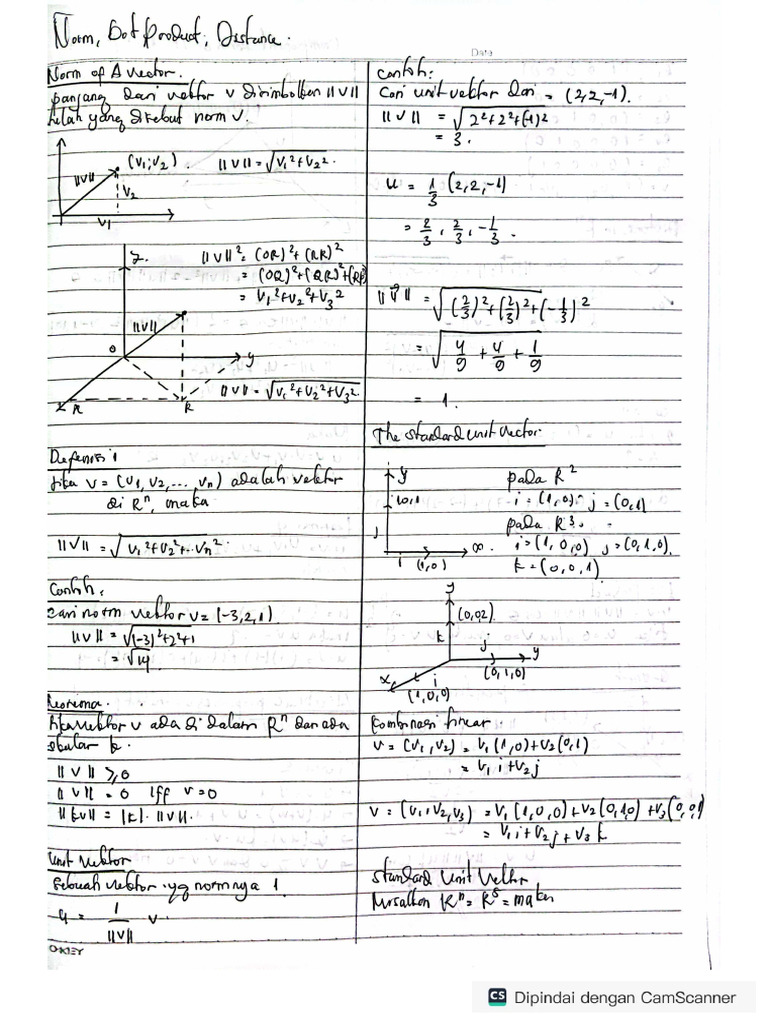 Norm, Dot Product, Distance.
Date
Norm of A vector.
panjang dari vektor v disimbolkan ||v||
yang disebut norm v.
(v₁, v₂). ||v|| = √v₁²+v₂².
||v||
v₂
v₁
z. ||v||² = (OR)²+(RR)²
= (OQ)²+(QR)²+(RR)
= v₁²+v₂²+v₃²
||v||
O
y
||v|| = √v₁²+v₂²+v₃².
x R
R
Definisi 1
Jika v = (v₁, v₂, ..., vₙ) adalah vektor
di Rⁿ, maka
||v|| = √v₁²+v₂²+...vₙ².
Contoh,
cari norm vektor v = (-3,2,1)
||v|| = √(-3)²+2²+1
= √14
Teorema.
Jika vektor v ada di dalam Rⁿ dan ada
skalar k.
||v|| ≥ 0
||v|| = 0 Iff v=0
||kv|| = |k|. ||v||.
Unit Vektor
Sebuah vektor yg normnya 1.
u = 1/||v|| v.
OKEY
Contoh:
Cari unit vektor dari = (2,2,-1).
||v|| = √2²+2²+(-1)²
= 3.
u = 1/3 (2,2,-1)
= 2/3, 2/3, -1/3.
||v|| = √(2/3)²+(2/3)²+(-1/3)²
= √4/9 + 4/9 + 1/9
= 1.
The standard unit vector.
y pada R²
(0,1 i = (1,0). j = (0,1)
pada R³.
j
x. i=(1,0,0) j=(0,1,0).
i (1,0) k=(0,0,1)
y
(0,02).
k
j y
(0,1,0)
x i
(1,0,0)
Kombinasi linear.
v = (v₁,v₂) = v₁(1,0)+v₂(0,1)
= v₁i+v₂j
v = (v₁,v₂,v₃) = v₁(1,0,0)+v₂(0,1,0)+v₃(0,0,1)
= v₁i+v₂j+v₃k
Standard Unit Vektor
Misalkan Rⁿ = R⁵ = maka
CS Dipindai dengan CamScanner